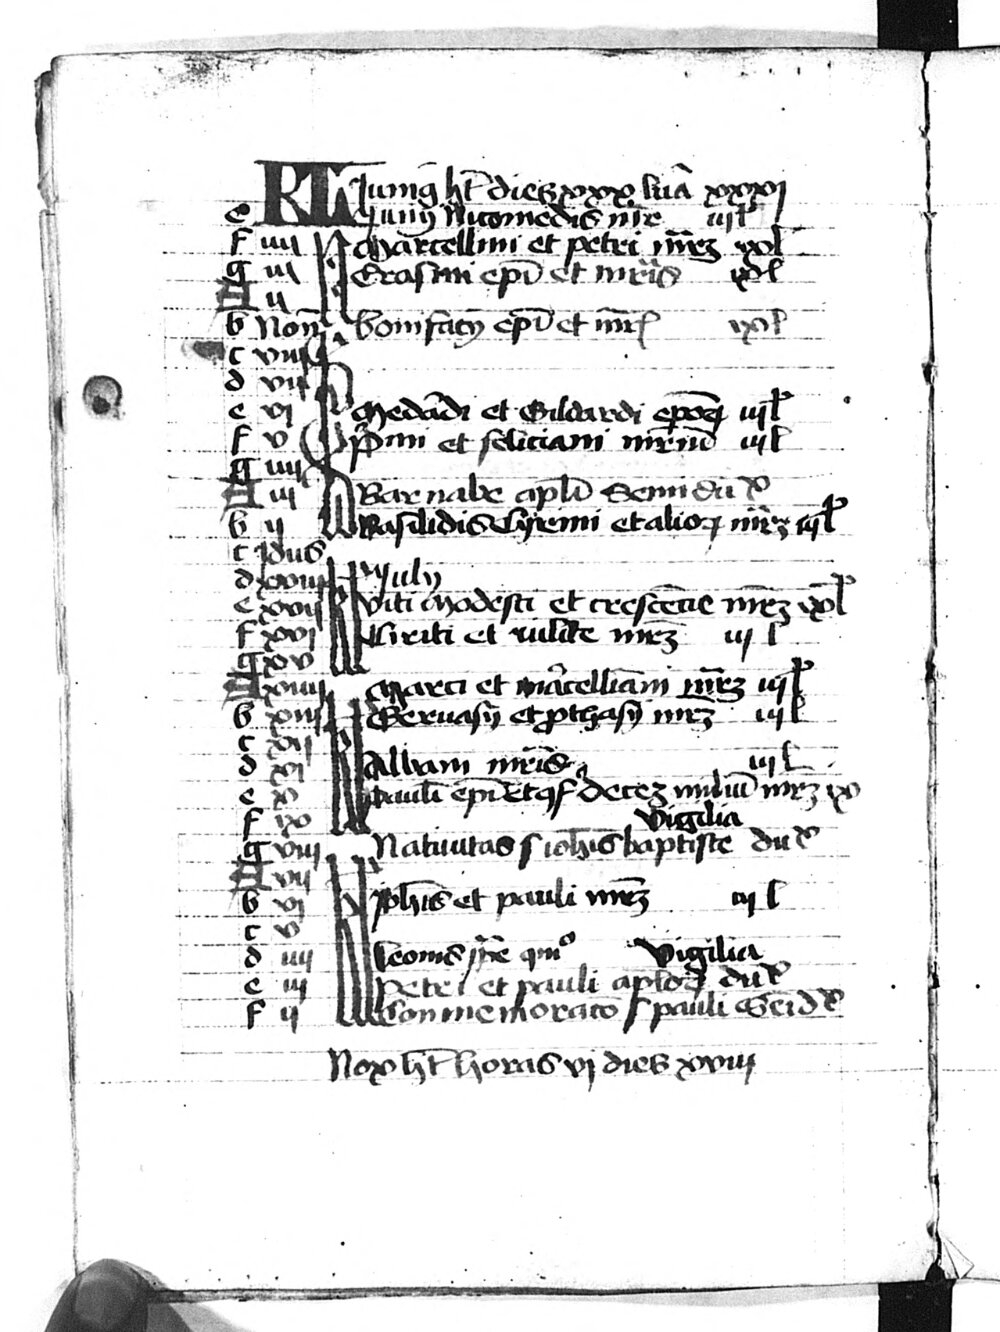 KL Juniꝯ ht̄ dies xxx luā xxxi
e Junij Nicomedis mr̄e iij l
f iiij Marcellini et petri mr̄ꝝ ix l
g iij Erasmi ep̄i et mr̄is ix l
A ij
b Non̄ bonifacij ep̄i et mr̄ ix l
c viij
d vij
e vi Medādi et Gildardi ep̄oꝝ iij l
f v P̄mi et feliciani mr̄m̄ iij l
g iiij
A iij Barnabe apl̄i Semi du
b ij Basilidis Cyrini et alioꝝ mr̄ꝝ iij l
c Idus
d xviij July
e xvij Viti Modesti et crescēcie mr̄ꝝ ix l
f xvi Quiriti et iulite mr̄ꝝ iij l
g xv
A xiiij Marci et m̄rcelliani mr̄ꝝ iij l
b xiij Geruasij et ꝓthasij mr̄ꝝ iij l
c xij
d xi Albani mr̄is iij l
e x Pauli ep̄i et decez miliū mr̄ꝝ ix
f ix Vigilia
g viij Natiuitas s ioh̄is baptiste du
A vij
b vi Joh̄is et pauli mr̄ꝝ iij l
c v
d iiij Leonis Vigilia
e iij Petri et pauli apl̄oꝝ du
f ij Conmemoratō s pauli
Nox ht̄ horas vi dies xviij